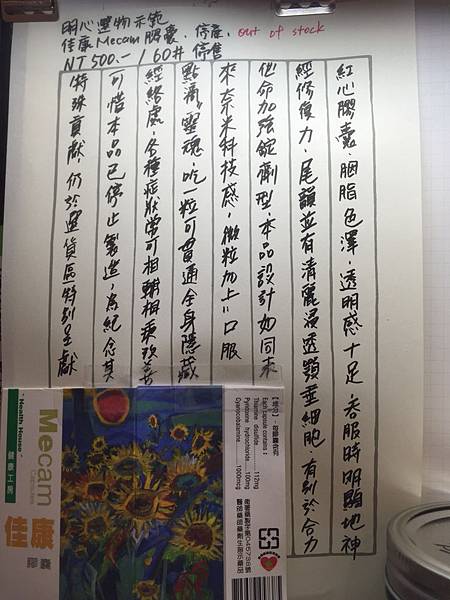 明心選物示範
佳康Mecam膠囊、停產, out of stock
NT 500.- / 60# 停售
紅心膠囊,胭脂色澤,透明感十足,吞服時明顯地神
經修復力,尾韻並有清麗浸透顎垂細胞,有別於合力
他命加強錠劑型,本品設計如同未
來奈米科技感,微粒加上"口服
點滴"靈魂,吃一粒可貫通全身隱藏
經絡處,各種症狀常可相輔相乘改善
可惜本品已停止製造,為紀念其
特殊貢獻,仍於選貨區特別呈獻
" Health House "
健康工房
Mecam
Capsules
佳康
膠囊
【成分】:每膠囊含有
Each capsule contains:
Thiamine disulfide..........112mg
Pyridoxine hydrochloride...100mg
Cyanocobalamine............1000mcg
衛署藥製字第045738號
醫師藥師藥劑生指示藥品